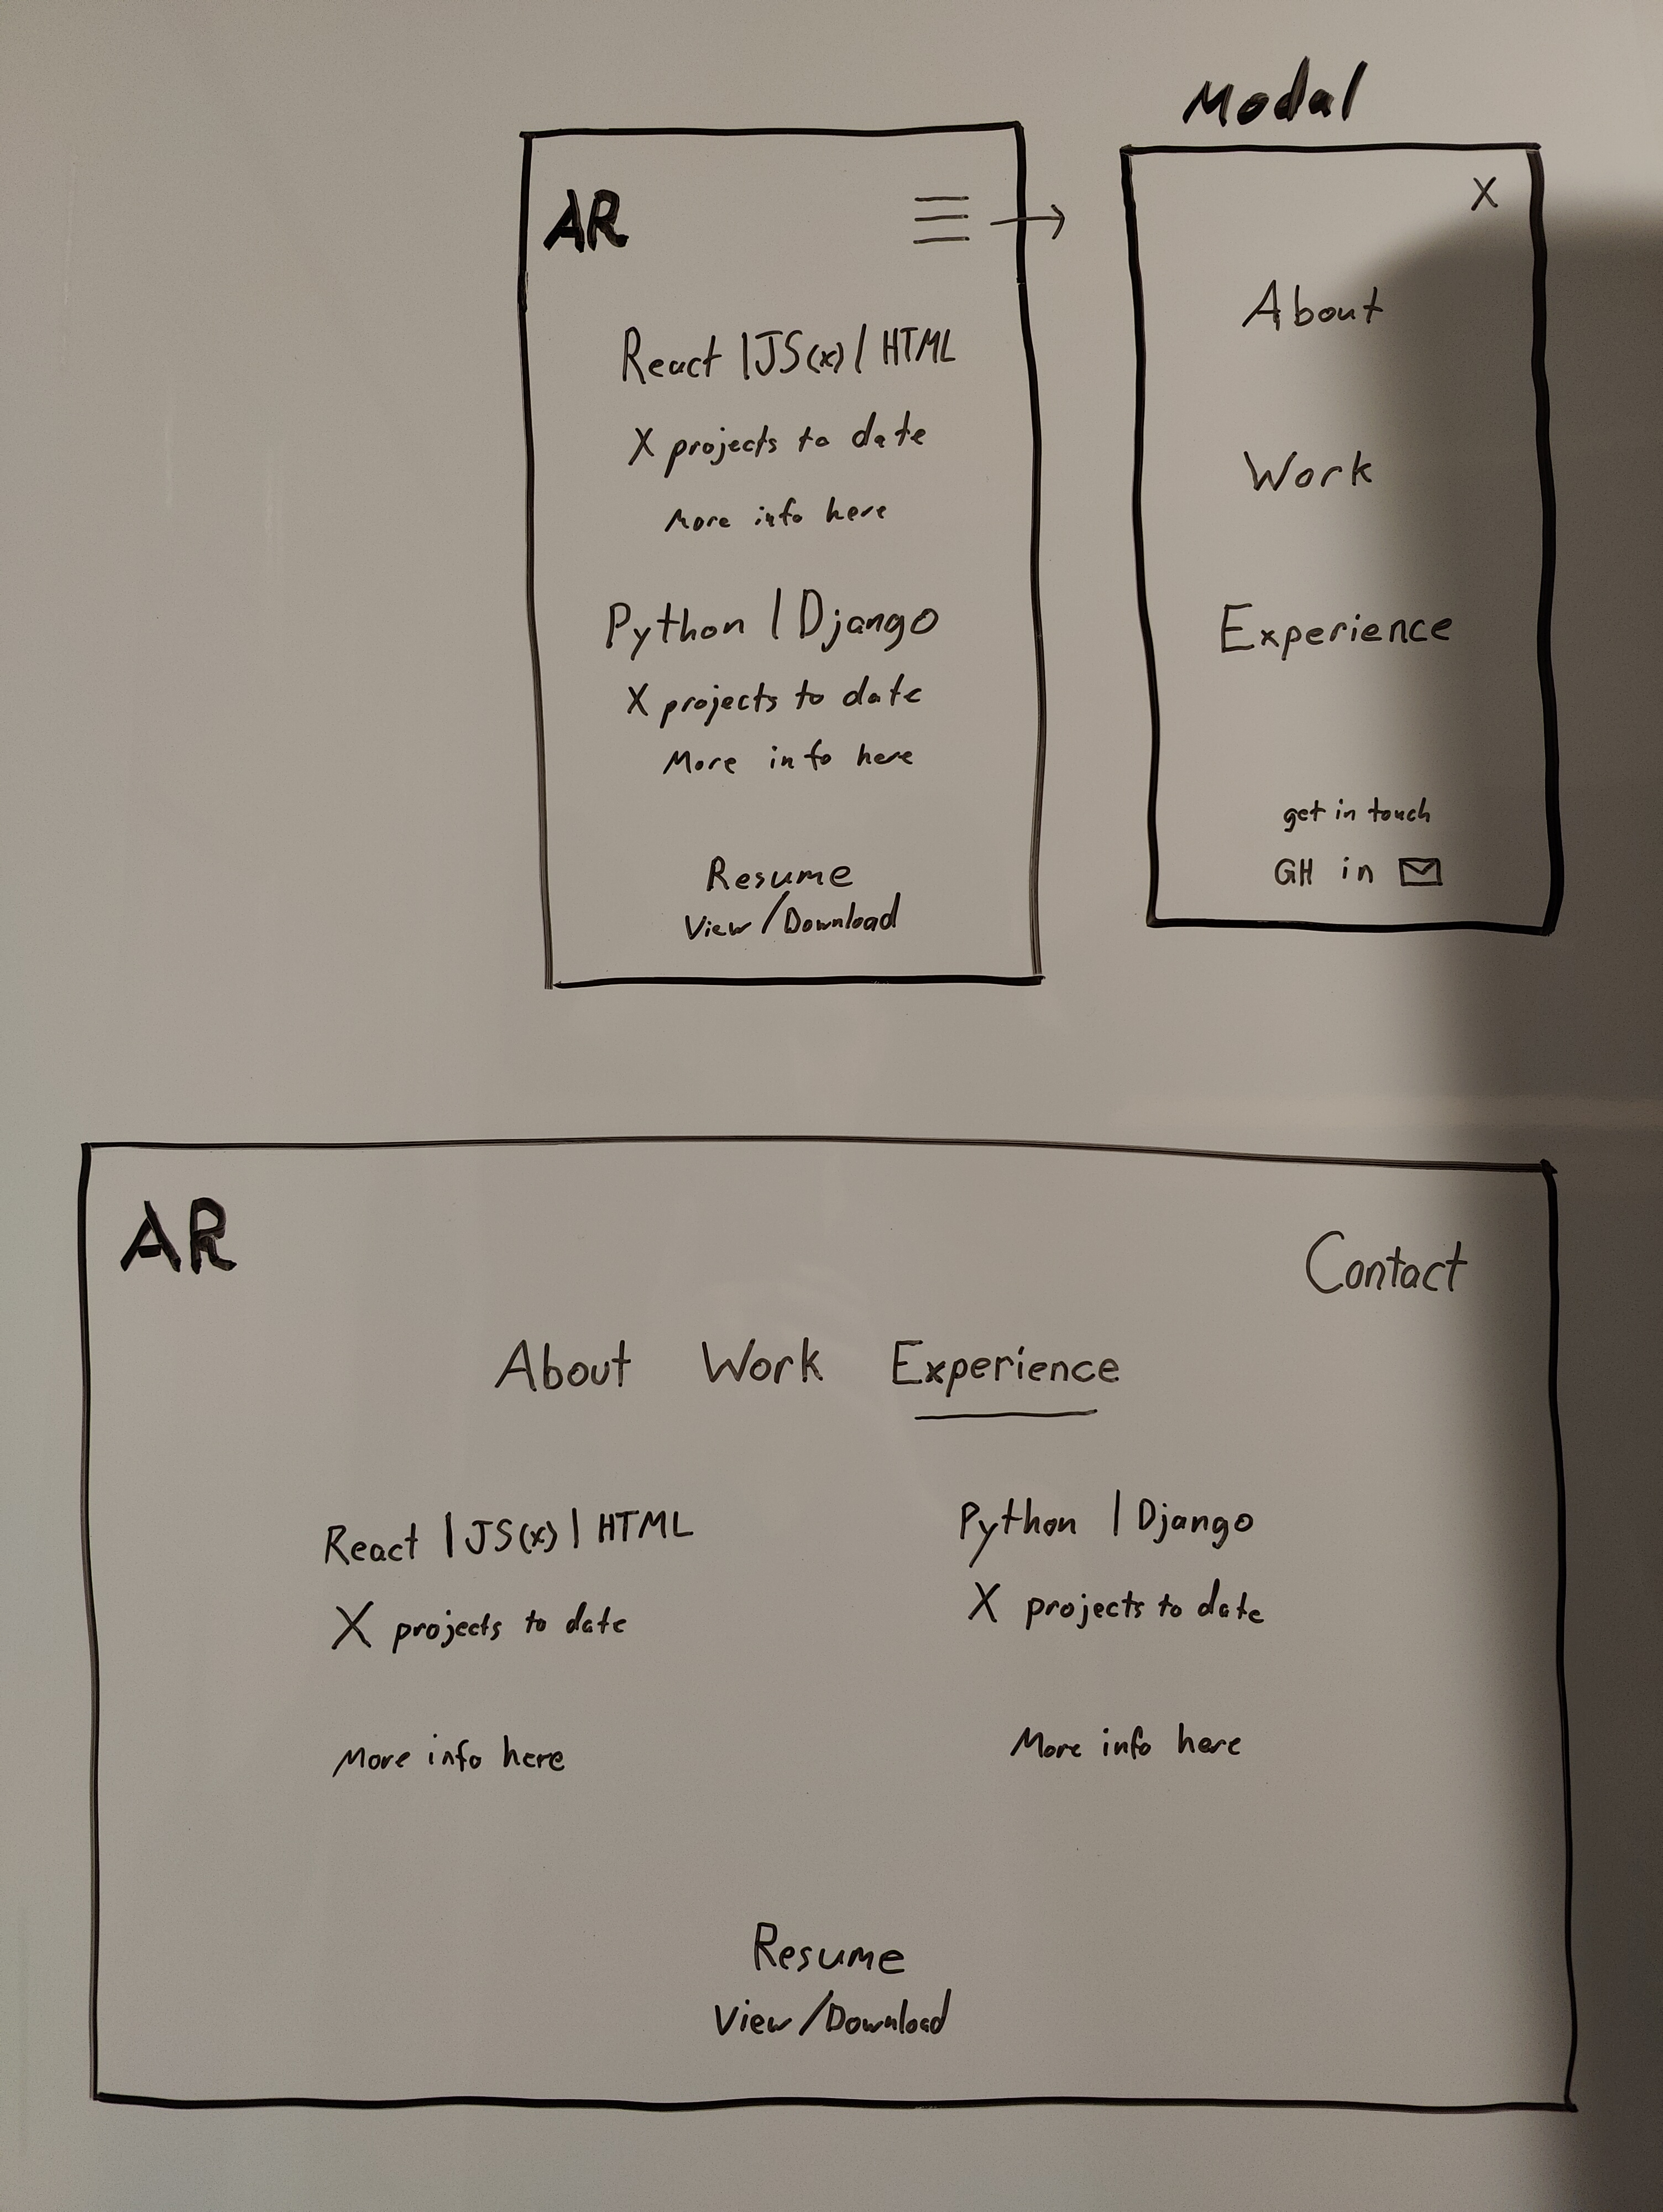 Modal
AR
React | JS(x) | HTML
X projects to date
More info here
Python | Django
X projects to date
More info here
Resume
View/Download
X
About
Work
Experience
get in touch
GH in
AR
Contact
About Work Experience
React | JS(x) | HTML
X projects to date
More info here
Python | Django
X projects to date
More info here
Resume
View/Download